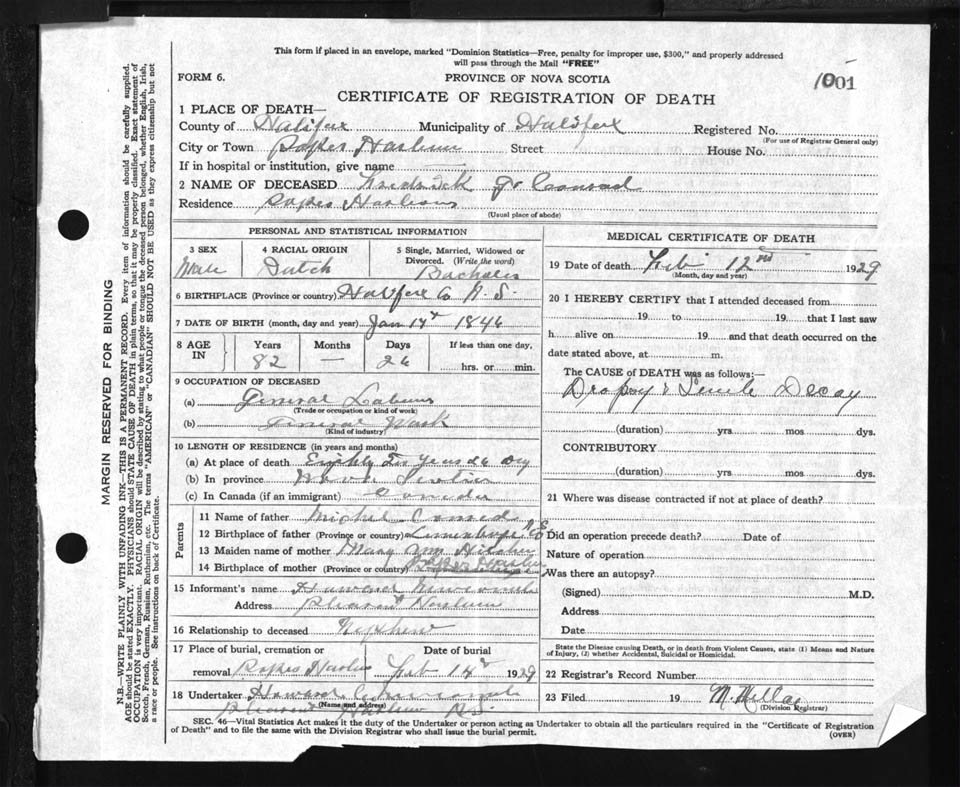 This form if placed in an envelope, marked "Dominion Statistics—Free, penalty for improper use, $300," and properly addressed
will pass through the Mail "FREE"
FORM 6.
PROVINCE OF NOVA SCOTIA
1001
CERTIFICATE OF REGISTRATION OF DEATH
1 PLACE OF DEATH—
County of Halifax Municipality of Halifax Registered No.
(For use of Registrar General only)
City or Town Popes Harbour Street House No.
If in hospital or institution, give name
2 NAME OF DECEASED Fredrick Conrad
Residence Popes Harbour
(Usual place of abode)
PERSONAL AND STATISTICAL INFORMATION
3 SEX 4 RACIAL ORIGIN 5 Single, Married, Widowed or
Divorced. (Write the word)
Male Dutch Bachelor
6 BIRTHPLACE (Province or country) Halifax Co N.S.
7 DATE OF BIRTH (month, day and year) Jan 17th 1846
8 AGE IN Years Months Days If less than one day,
82 — 26 hrs. or min.
9 OCCUPATION OF DECEASED
(a) General Labour
(Trade or occupation or kind of work)
(b) General Work
(Kind of industry)
10 LENGTH OF RESIDENCE (in years and months)
(a) At place of death Eighty Two Years 26 Dy
(b) In province Nova Scotia
(c) In Canada (if an immigrant) Canada
Parents
11 Name of father Michel Conrad
12 Birthplace of father (Province or country) Lunenburg N.S.
13 Maiden name of mother Mary Ann
14 Birthplace of mother (Province or country) Harbour
15 Informant's name Howard Newcombe
Address Pleasant Harbour
16 Relationship to deceased Nephew
17 Place of burial, cremation or Date of burial
removal Popes Harbour Feb 14th 1929
18 Undertaker Howard Newcombe
(Name and address)
Pleasant Harbour N.S.
MEDICAL CERTIFICATE OF DEATH
19 Date of death Feb 12nd 1929
(Month, day and year)
20 I HEREBY CERTIFY that I attended deceased from
19 to 19 that I last saw
h alive on 19 and that death occurred on the
date stated above, at m.
The CAUSE OF DEATH was as follows:—
Dropsy & Senile Decay
(duration) yrs mos dys.
CONTRIBUTORY
(duration) yrs mos dys.
21 Where was disease contracted if not at place of death?
Did an operation precede death? Date of
Nature of operation
Was there an autopsy?
(Signed) M.D.
Address
Date
State the Disease causing Death, or in death from Violent Causes, state (1) Means and Nature
of Injury, (2) whether Accidental, Suicidal or Homicidal.
22 Registrar's Record Number
23 Filed 19
(Division Registrar)
SEC. 46—Vital Statistics Act makes it the duty of the Undertaker or person acting as Undertaker to obtain all the particulars required in the "Certificate of Registration
of Death" and to file the same with the Division Registrar who shall issue the burial permit.
(OVER)
MARGIN RESERVED FOR BINDING
N.B.—WRITE PLAINLY WITH UNFADING INK—THIS IS A PERMANENT RECORD. Every item of information should be carefully supplied.
AGE should be stated EXACTLY. PHYSICIANS should STATE CAUSE OF DEATH in plain terms, so that it may be properly classified. Exact statement of
OCCUPATION is very important. RACIAL ORIGIN will be described by stating to what people or tongue the deceased person belonged, whether English, Irish,
Scotch, French, German, Russian, Ruthenian, etc. The terms "AMERICAN" or "CANADIAN" SHOULD NOT BE USED as they express citizenship but not
a race or people. See instructions on back of Certificate.